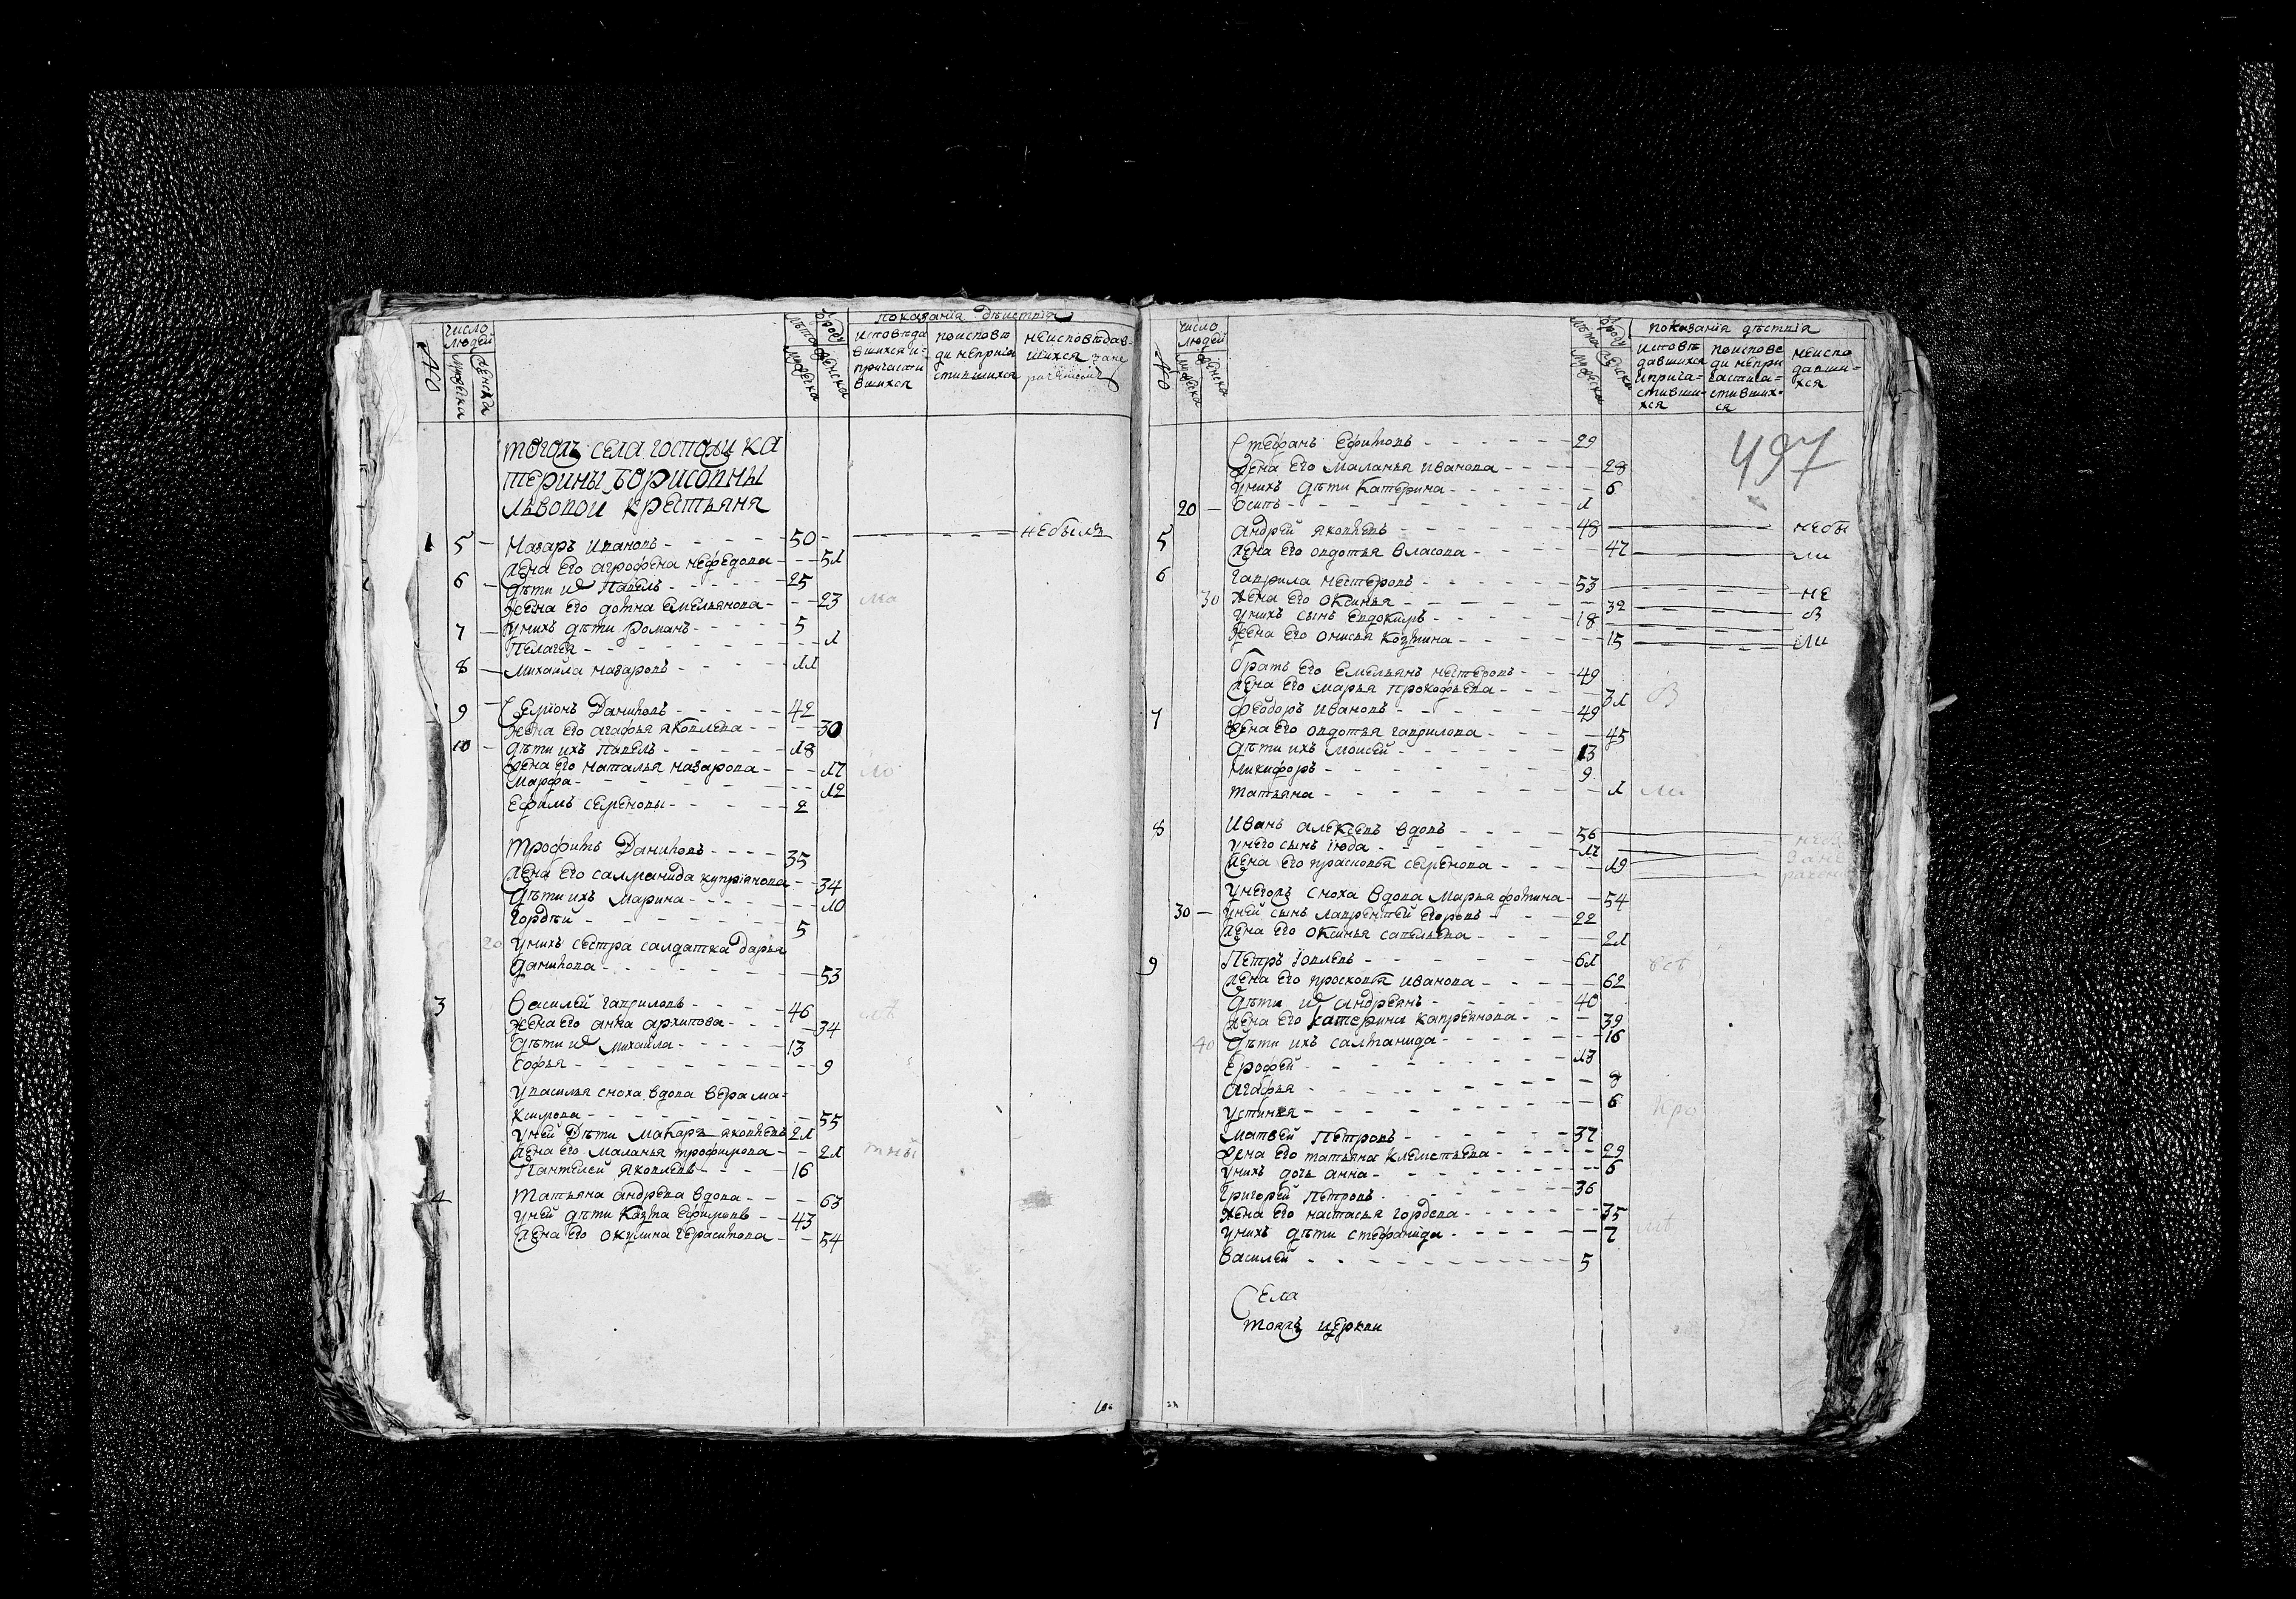 число людей
мужеска
женска
лѣта
ѿ роду
мужеска
женска
показания дѣиствия
исповѣда
вшихся и
причасти
вшихся
поисповѣ
ди неприча
стившихся
неисповѣдав
шихся
тогожъ села госпожи ка
терины борисовны
львовой крестьяня
1 5 Назаръ Ивановъ 50 небылъ
жена его агрофена нефедова 51
6 дѣти их Павелъ 25
жена его домна емельянова 23 мо
7 у нихъ дѣти Романъ 5
Пелагея 1
8 михаила назаровъ 11
9 Семионъ Даниловъ 42
жена его агафья яковлева 30
10 дѣти ихъ павелъ 18
жена его наталья назарова 17 ло
Марфа 12
Ефимъ семеновы 2
Трофимъ Даниловъ 35
жена его саломанида куприянова 34
дѣти ихъ марина 10
Гордѣй 5
20 у нихъ сестра салдатка дарья
данилова 53
3 Василей гавриловъ 46
жена его анна архипова 34
дѣти их михаила 13
софья 9
у василья сноха вдова вера ма
ксимова 55
у ней дѣти макаръ яковлевъ 21
жена его маланья трофимова 21 тны
Пантелей яковлевъ 16
4 татьяна андрева вдова 63
у ней дѣти козма ефимовъ 43
жена его окулина герасимова 54
число людей
мужеска
женска
лѣта
ѿ роду
мужеска
женска
показания дѣствия
исповѣ
давшихся
и прича
стивши
хся
поиспове
ди непри
стивших
ся
неиспо
давши
хся
497
Стефанъ Ефимовъ 29
жена его маланья иванова 28
у нихъ дѣти Катерина 6
20 Осипъ 1
5 андрей яковлевъ 48 небы
жена его овдотья власова 47 ли
6 гаврила нестеровъ 53 не
30 жена его оксинья 32
у нихъ сынъ евдокимъ 18
жена его онисья козмина 15 ли
братъ его емельянъ нестеровъ 49
жена его марья прокофьева 31
7 феодоръ ивановъ 49
жена его овдотья гаврилова 45
дѣти ихъ моисей 13
никифоръ 9
татьяна 1 ли
8 Иванъ алексевъ вдовъ 56
у него сынъ июда 17
жена его прасковья семенова 19
у негожъ сноха вдова марья фотина 54
30 у ней сынъ лаврентей егоровъ 22
жена его оксинья савельева 21
9 Петръ иовлевъ 61
жена его просковья иванова 62
дѣти их андреянъ 40
жена его катерина капреянова 39
40 дѣти ихъ салманида 16
Ерофей 13
агафья 8
устинья 6
матвей Петровъ 37
жена его татьяна клеместьева 29
у нихъ дочь анна 6
Григорей Петровъ 36
жена его настасья гордева 35
у нихъ дѣти стефанида 7
василей 5
Села
тояжъ церкви